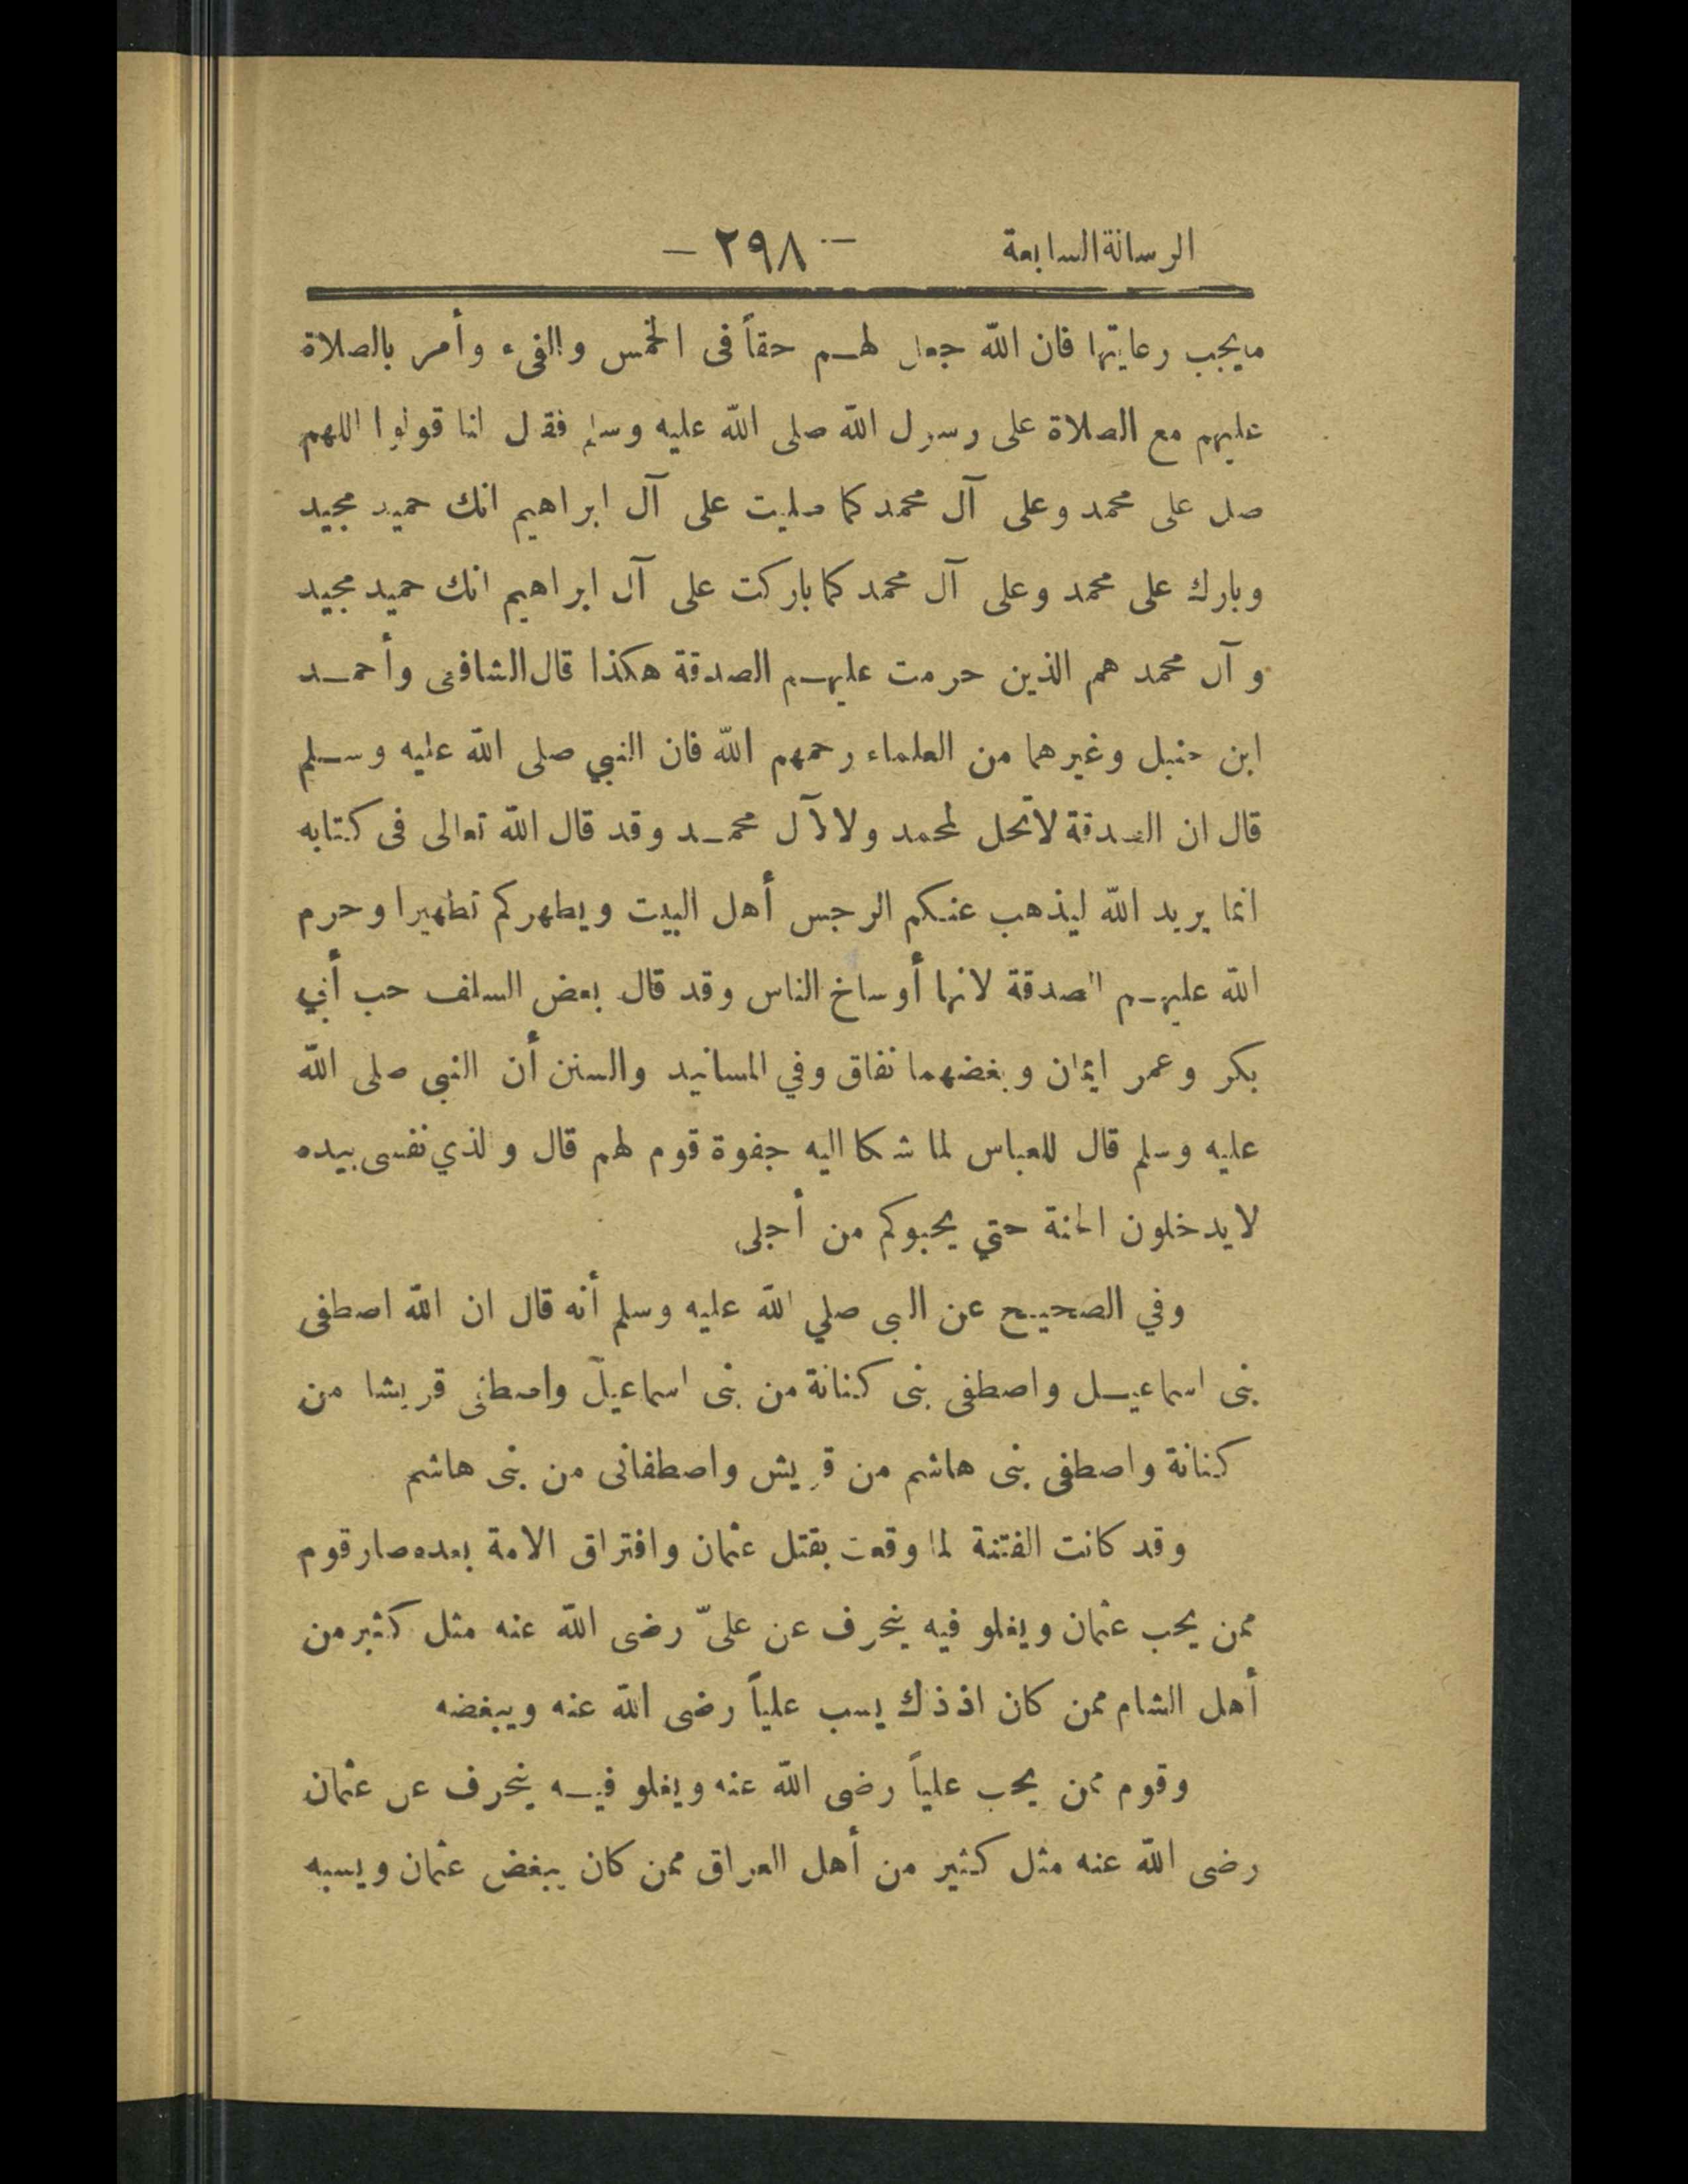 الرسالة السابعة - ٢٩٨ -
مايجب رعايتها فان الله جعل لهم حقاً فى الخمس والفىء وأمر بالصلاة
عليهم مع الصلاة على رسول الله صلى الله عليه وسلم فقال لنا قولوا اللهم
صل على محمد وعلى آل محمد كما صليت على آل ابراهيم انك حميد مجيد
وبارك على محمد وعلى آل محمد كما باركت على آل ابراهيم انك حميد مجيد
وآل محمد هم الذين حرمت عليهم الصدقة هكذا قال الشافعى وأحمد
ابن حنبل وغيرهما من العلماء رحمهم الله فان النبي صلى الله عليه وسلم
قال ان الصدقة لاتحل لمحمد ولا لآل محمد وقد قال الله تعالى فى كتابه
انما يريد الله ليذهب عنكم الرجس أهل البيت ويطهركم تطهيرا وحرم
الله عليهم الصدقة لانها أوساخ الناس وقد قال بعض السلف حب أبي
بكر وعمر ايمان وبغضهما نفاق وفي المسانيد والسنن أن النبى صلى الله
عليه وسلم قال للعباس لما شكا اليه جفوة قوم لهم قال والذي نفسى بيده
لايدخلون الجنة حتي يحبوكم من أجلى
وفي الصحيح عن النبى صلي الله عليه وسلم أنه قال ان الله اصطفى
بنى اسماعيل واصطفى بنى كنانة من بنى اسماعيل واصطفى قريشا من
كنانة واصطفى بنى هاشم من قريش واصطفانى من بنى هاشم
وقد كانت الفتنة لما وقعت بقتل عثمان وافتراق الامة بعده صار قوم
ممن يحب عثمان ويغلو فيه ينحرف عن علىّ رضى الله عنه مثل كثير من
أهل الشام ممن كان اذ ذاك يسب علياً رضى الله عنه ويبغضه
وقوم ممن يحب علياً رضى الله عنه ويغلو فيه ينحرف عن عثمان
رضى الله عنه مثل كثير من أهل العراق ممن كان يبغض عثمان ويسبه